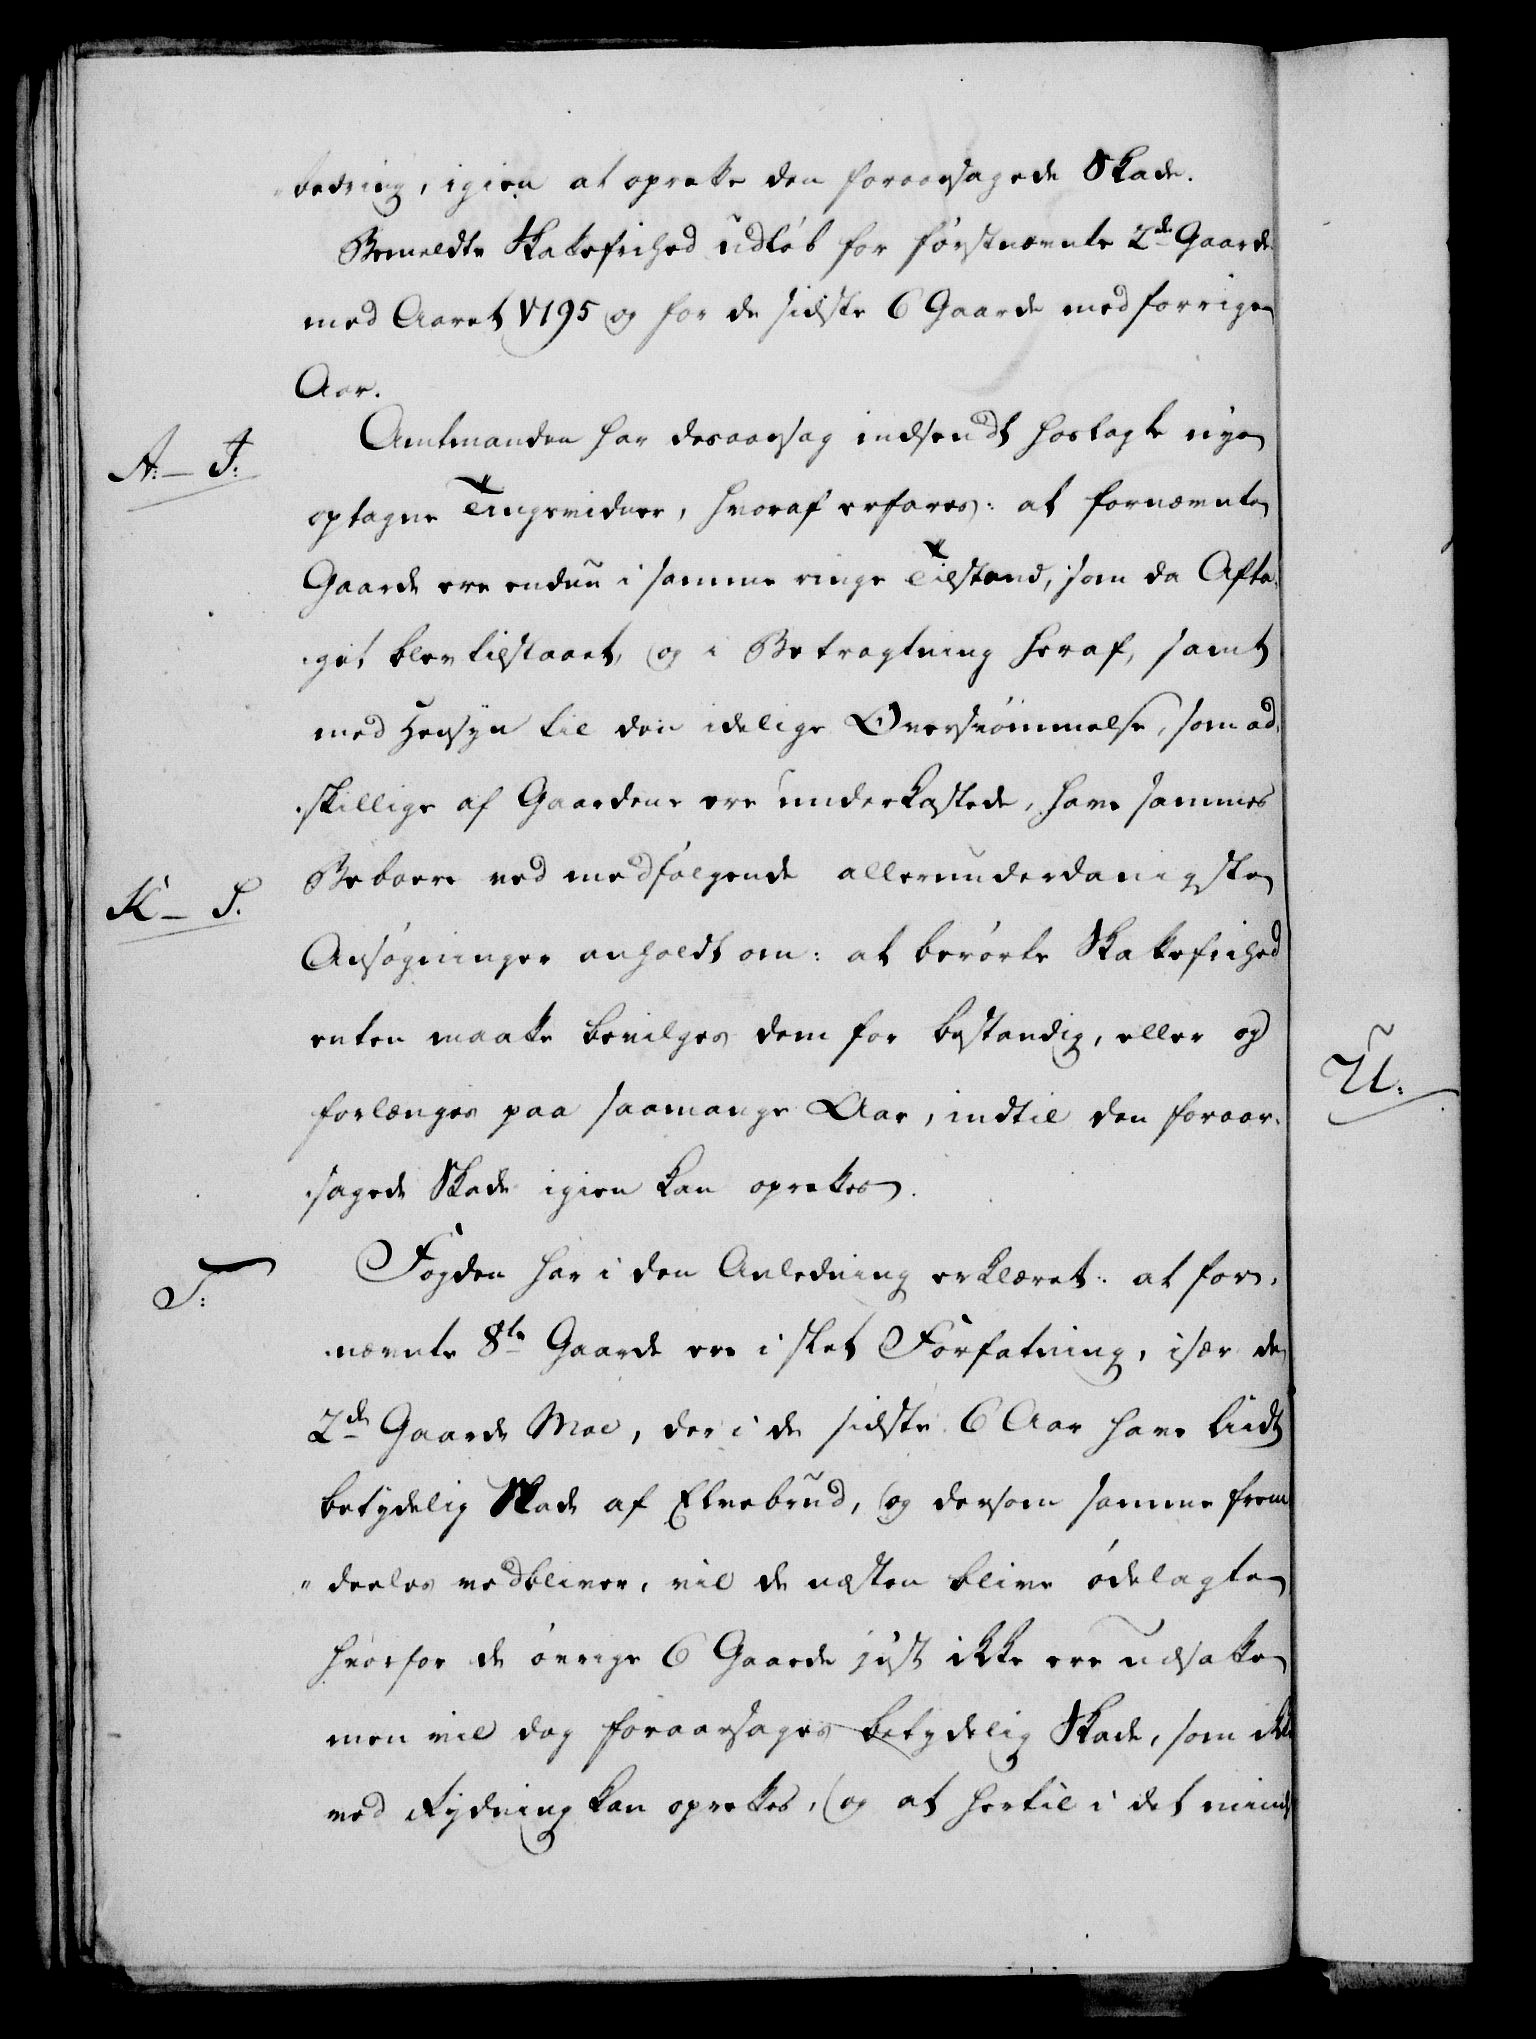 -bedring, igien at oprette den foraarsagede Skade.
Bemeldte Skattefrihed udløb for førstnævnte 2de Gaarde
med Aaret 1795 og for de sidste 6 Gaarde med forrige
Aar.
A:- J:
Amtmanden har desaarsag indsendt hoslagte nye
optagne Tingsvidner, hvoraf erfares: at fornævnte
Gaarde ere endnu i samme ringe Tilstand, som da Afta-
-get blev tilstaaet, og i Betragtning heraf, samt
med Hensyn til den idelige Oversvømmelse, som ad-
-skillige af Gaardene ere underkastede, have sammes
K - S.
Beboere ved medfølgende allerunderdanigste
Ansøgninger anholdt om: at berørte Skattefrihed
enten maatte bevilges dem for bestandig, eller og
forlænges paa saamange Aar, indtil den foraar-
-sagede Skade igien kan oprettes.
T:
Fogden har i den Anledning erklæret: at for-
-nævnte 8te Gaarde ere i slet Forfatning, især de
2de Gaarde Moe, der i de sidste 6 Aar have liidt
betydelig Skade af Elvebrud, og dersom samme frem
-deeles vedbliver, vil de næsten blive ødelagte
hvorfor de øvrige 6 Gaarde just ikke ere udsatte
men vil dog foraarsages betydelig Skade, som ikke
ved Rydning kan oprettes, og at hertil i det mind
U: